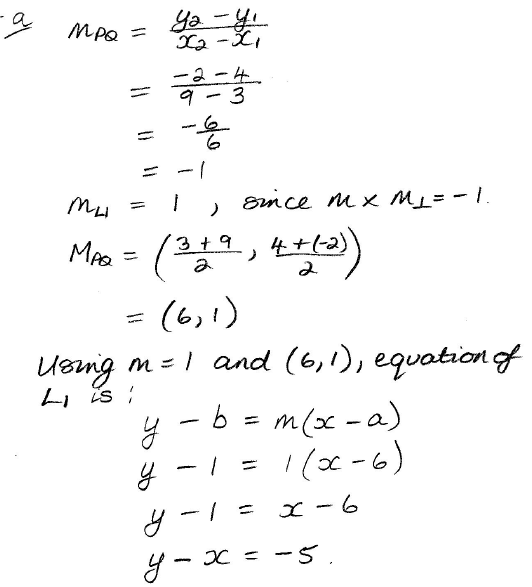 a m_PQ = (y₂ - y₁)/(x₂ - x₁)
= (-2 - 4)/(9 - 3)
= -6/6
= -1
m_L1 = 1 , since m x m⊥ = -1.
M_PQ = ((3 + 9)/2 , (4 + (-2))/2)
= (6, 1)
Using m = 1 and (6, 1), equation of
L₁ is :
y - b = m(x - a)
y - 1 = 1(x - 6)
y - 1 = x - 6
y - x = -5.